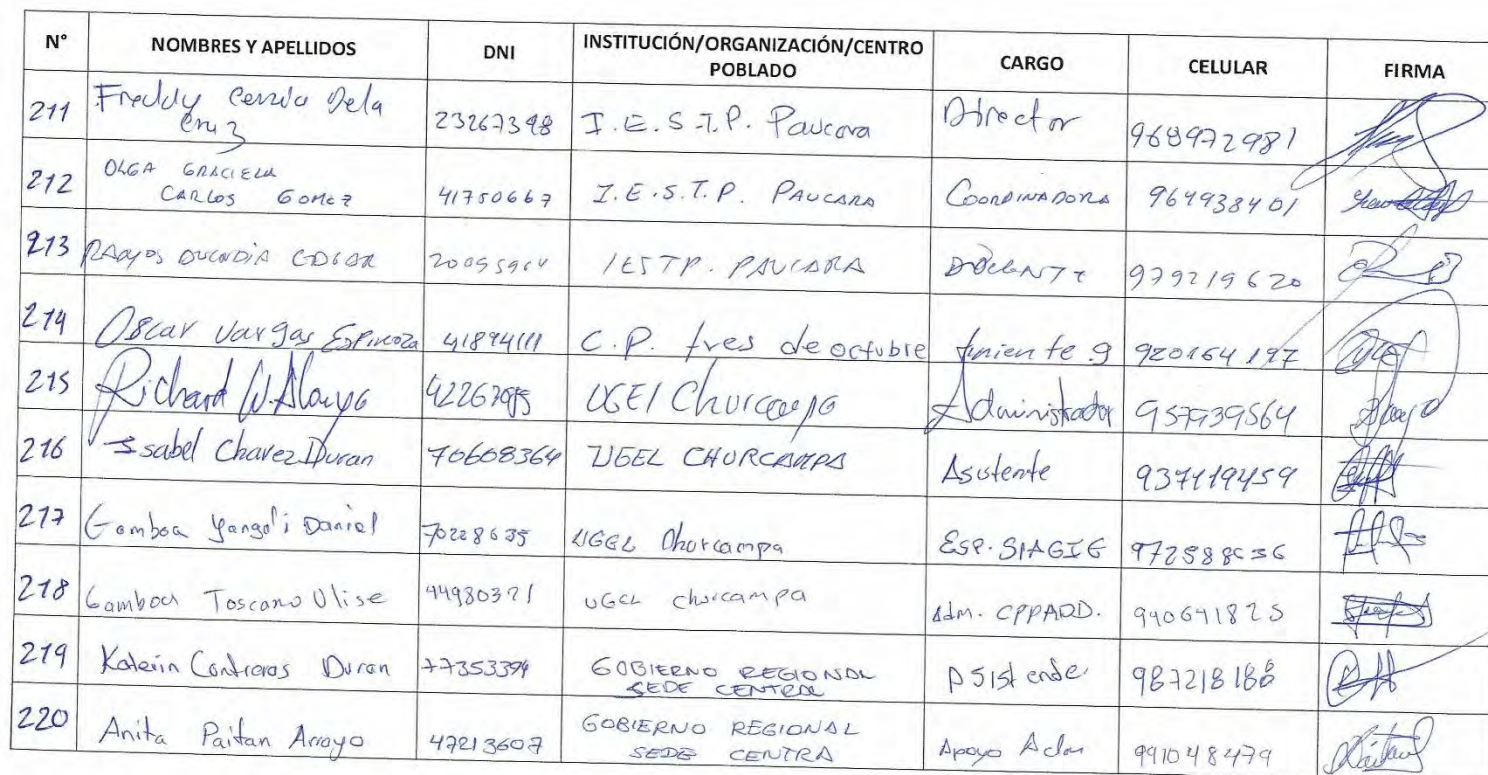 N° NOMBRES Y APELLIDOS DNI INSTITUCIÓN/ORGANIZACIÓN/CENTRO POBLADO CARGO CELULAR FIRMA
211 Freddy Dela Cruz 23267398 I.E.S.T.P. Paucara Director 968972981
212 OLGA GRACIELA CARLOS GOMEZ 41750667 I.E.S.T.P. PAUCARA COORDINADORA 964938401
213 EDGAR IESTP. PAUCARA DOCENTE 979219620
214 Oscar Vargas Espinoza 41894111 C.P. tres de octubre teniente g 920164197
215 Richard W. UGEL Churcampa Administrador 957939564
216 Isabel Chavez Duran 70608364 UGEL CHURCAMPA Asistente 937119459
217 Gamboa Yangali Daniel 70228635 UGEL Churcampa ESP. SIAGIE
218 Gamboa Toscano Ulise 44980321 UGEL churcampa Adm. CPPADD. 940641825
219 Katerin Contreras Duran 77353394 GOBIERNO REGIONAL SEDE CENTRAL Asistente 987218188
220 Anita Paitan Arroyo 47213607 GOBIERNO REGIONAL SEDE CENTRA Apoyo Adm 991048479